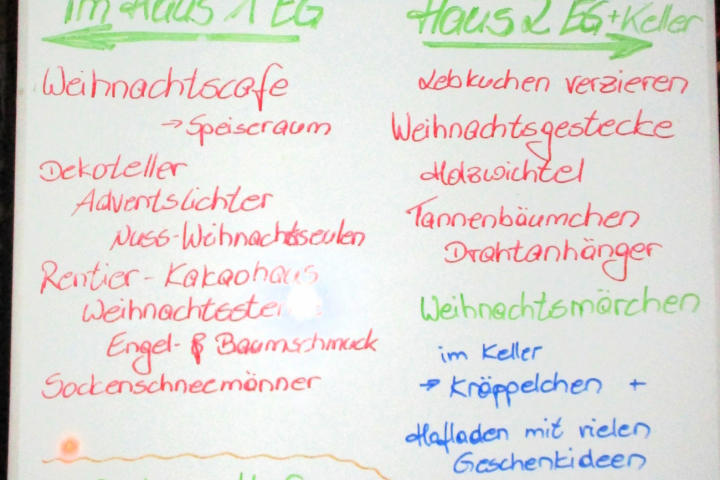 im Haus 1 EG
Weihnachtscafe
→ Speiseraum
Dekoteller
Adventslichter
Nuss-Weihnachtseulen
Rentier - Kakaohaus
Weihnachtsster
Engel- & Baumschmuck
Sockenschneemänner
Haus 2 EG + Keller
Lebkuchen verzieren
Weihnachtsgestecke
Holzwichtel
Tannenbäumchen
Drahtanhänger
Weihnachtsmärchen
im Keller
→ Kräppelchen +
Hofladen mit vielen
Geschenkideen